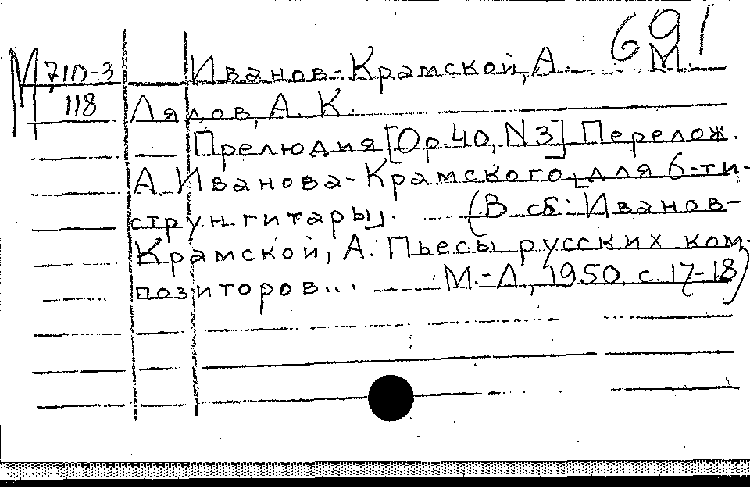 691
М 71D-3 Иванов-Крамской, А. М.
118 Лядов, А. К.
Прелюдия [Op. 40, N 3]. Перелож.
А. Иванова-Крамского [для 6-ти-
струн. гитары]. (В сб: Иванов-
Крамской, А. Пьесы русских ком-
позиторов... М.-Л., 1950, с. 17-18)